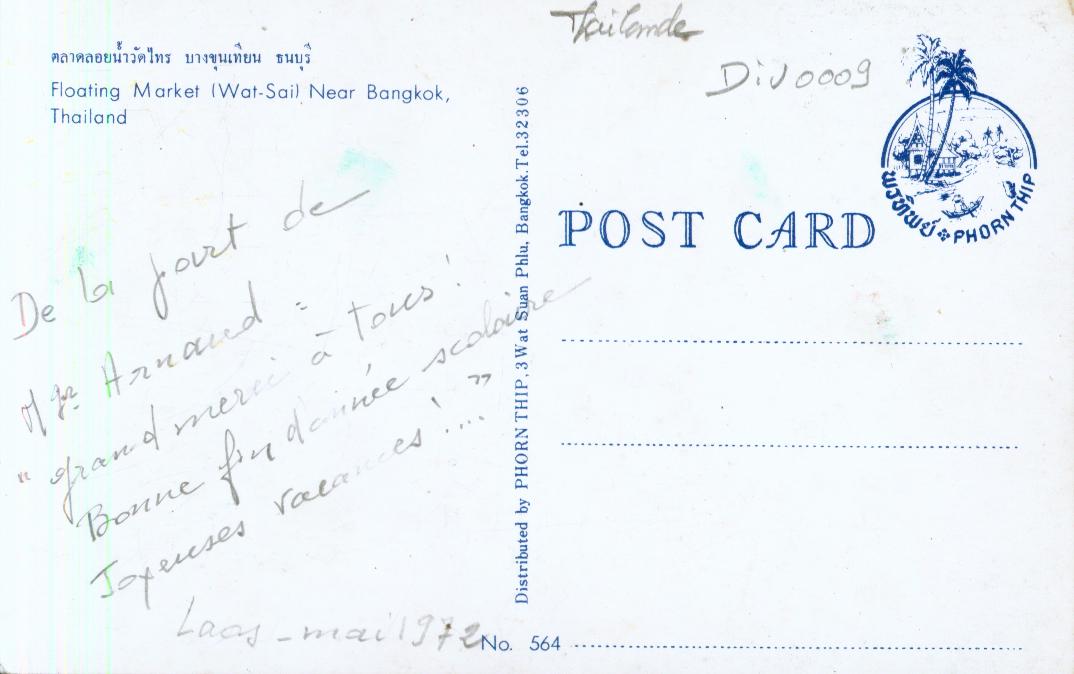 ตลาดลอยน้ำวัดไทร บางขุนเทียน ธนบุรี
Floating Market (Wat-Sai) Near Bangkok,
Thailand
Thailande
Div0009
พรทิพย์ PHORN THIP
POST CARD
De la part de
Mgr Arnaud :
"grand merci à tous !
Bonne fin d'année scolaire
Joyeuses vacances !... "
Laos - mai 1972
Distributed by PHORN THIP, 3 Wat Suan Phlu, Bangkok. Tel. 32306
No. 564